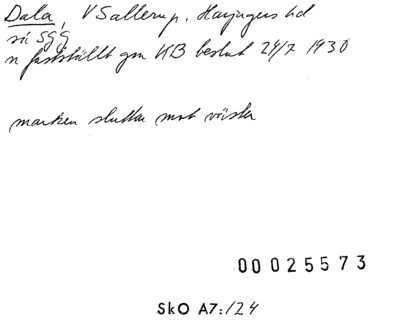 Dala, V Sallerup, Harjagers hd
så SGG
n fastställt gm KB beslut 24/7 1930
marken sluttar mot väster
00 025573
SkO A7:124